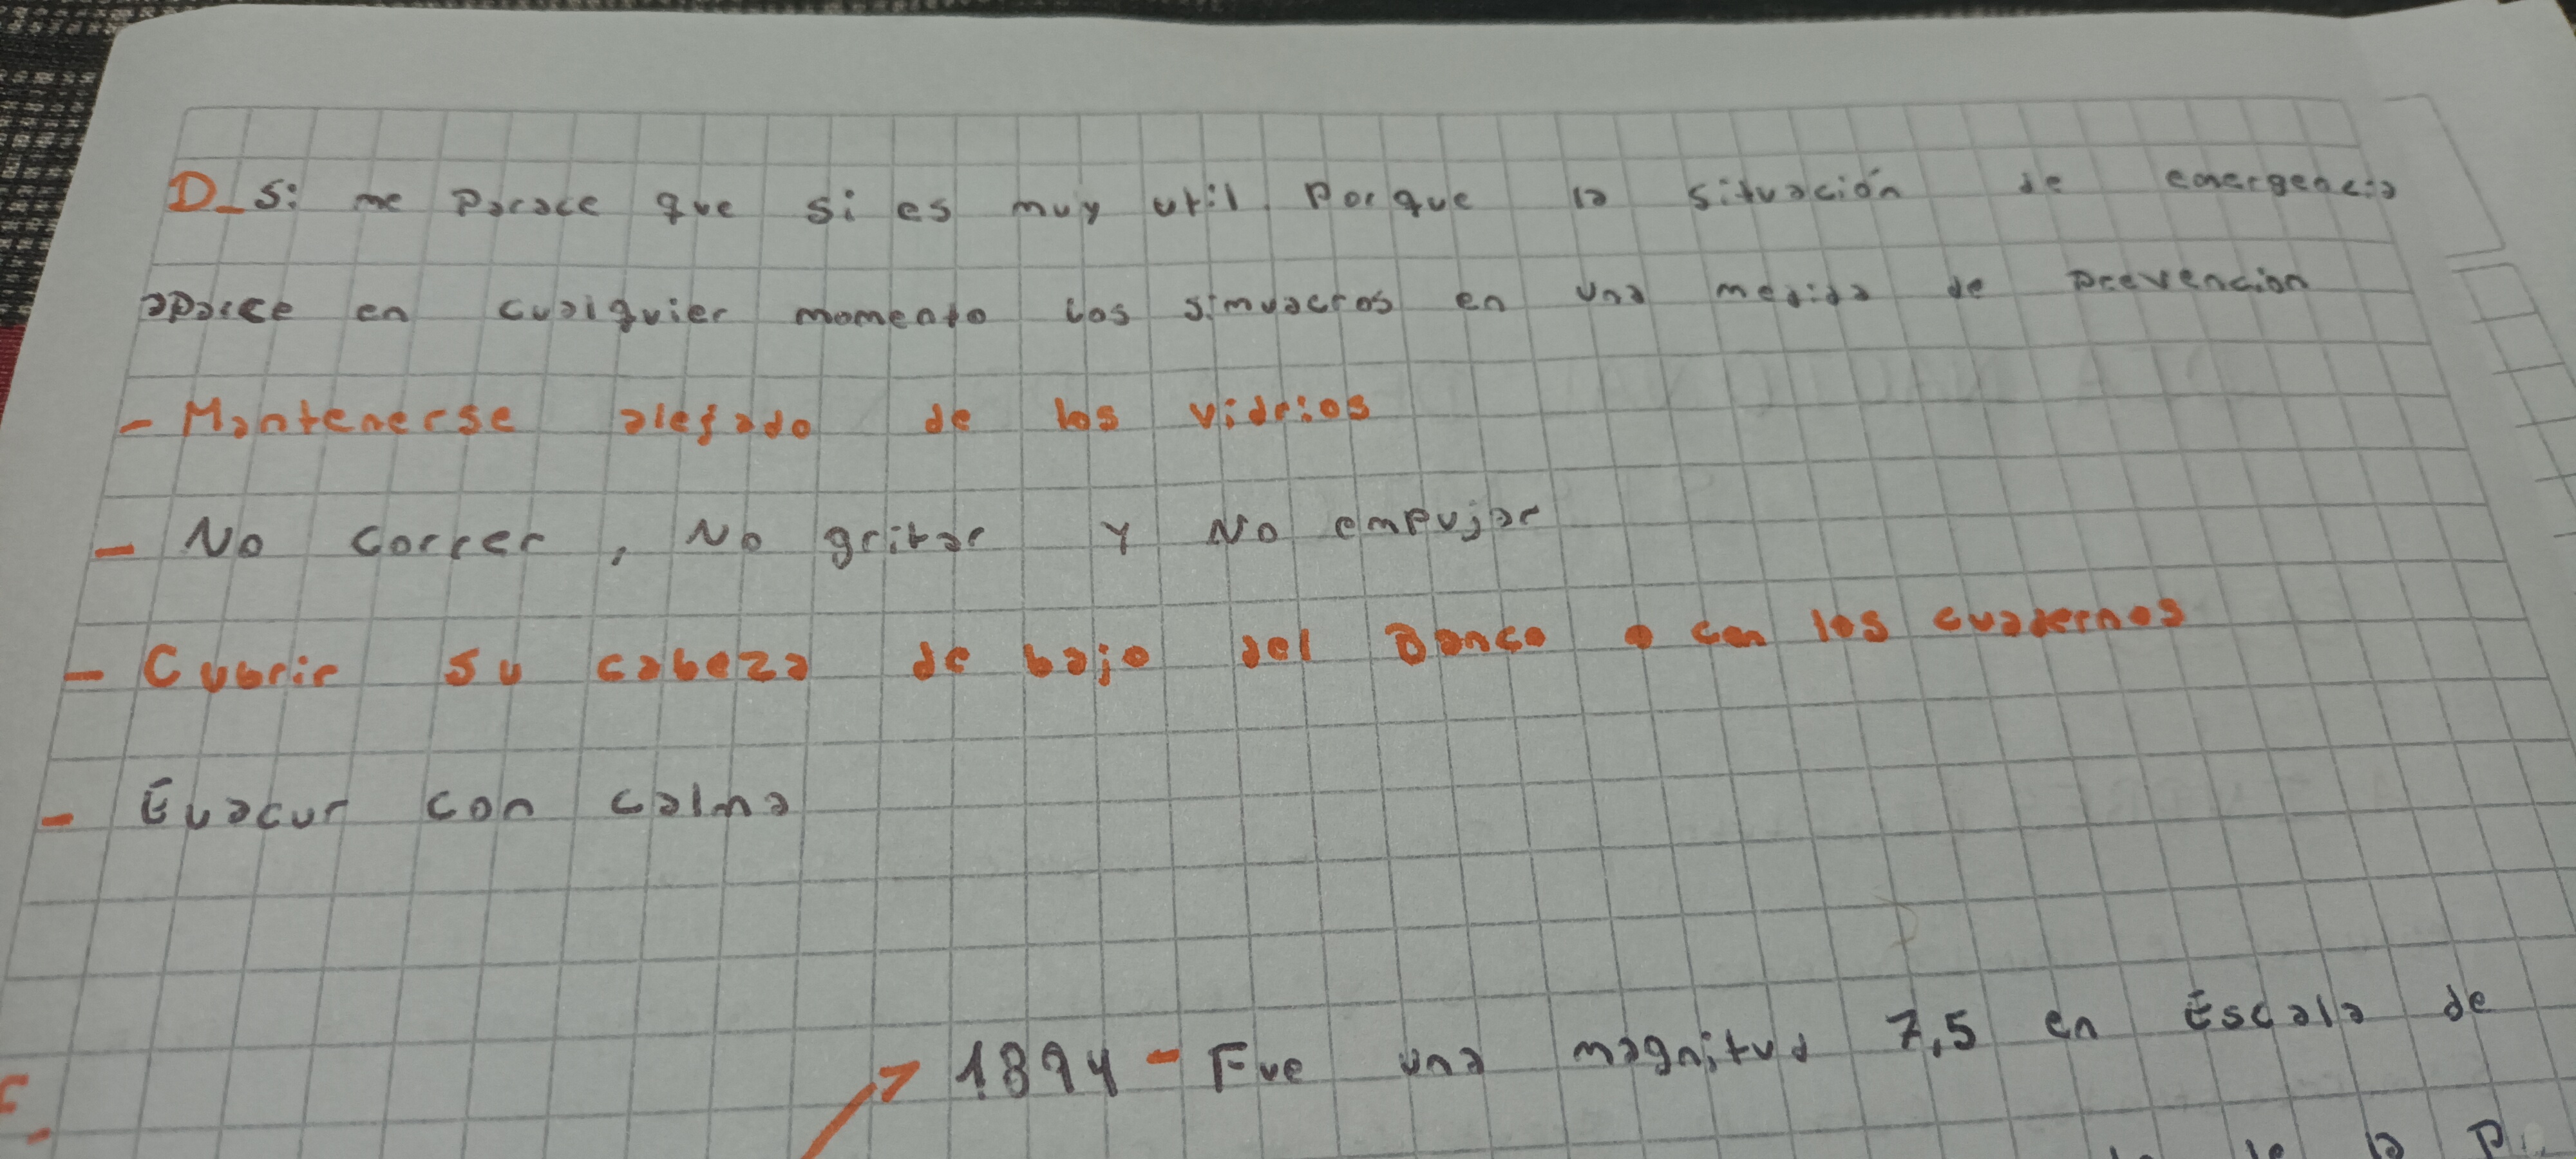 D_Si me Parace que si es muy util. Porque la situación de emergencia
aparce en cualquier momento los simuacros en una medida de prevencion
- Mantenerse alejado de los vidrios
- No correr, No gritar Y No empujar
- Cubrir su cabeza de bajo del Banco o con los cuadernos
- Evacur con calma
1894 - Fue una magnitud 7,5 en Escala de
de la P